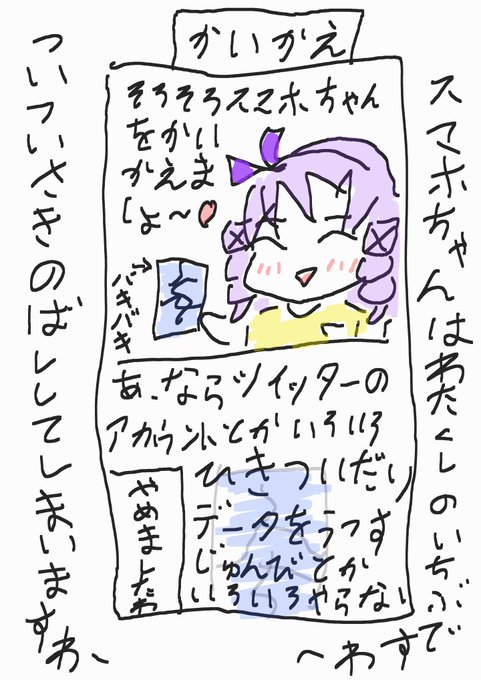 かいかえ
そろそろスマホちゃん
をかい
かえま
しょ〜
バキバキ
あ、ならツイッターの
アカウントとかいろいろ
ひきついだり
データをうつす
じゅんびとか
いろいろやらない
やめましたわ
スマホちゃんはわたくしのいちぶで
すわ〜
ついついさきのばししてしまいます
わ、